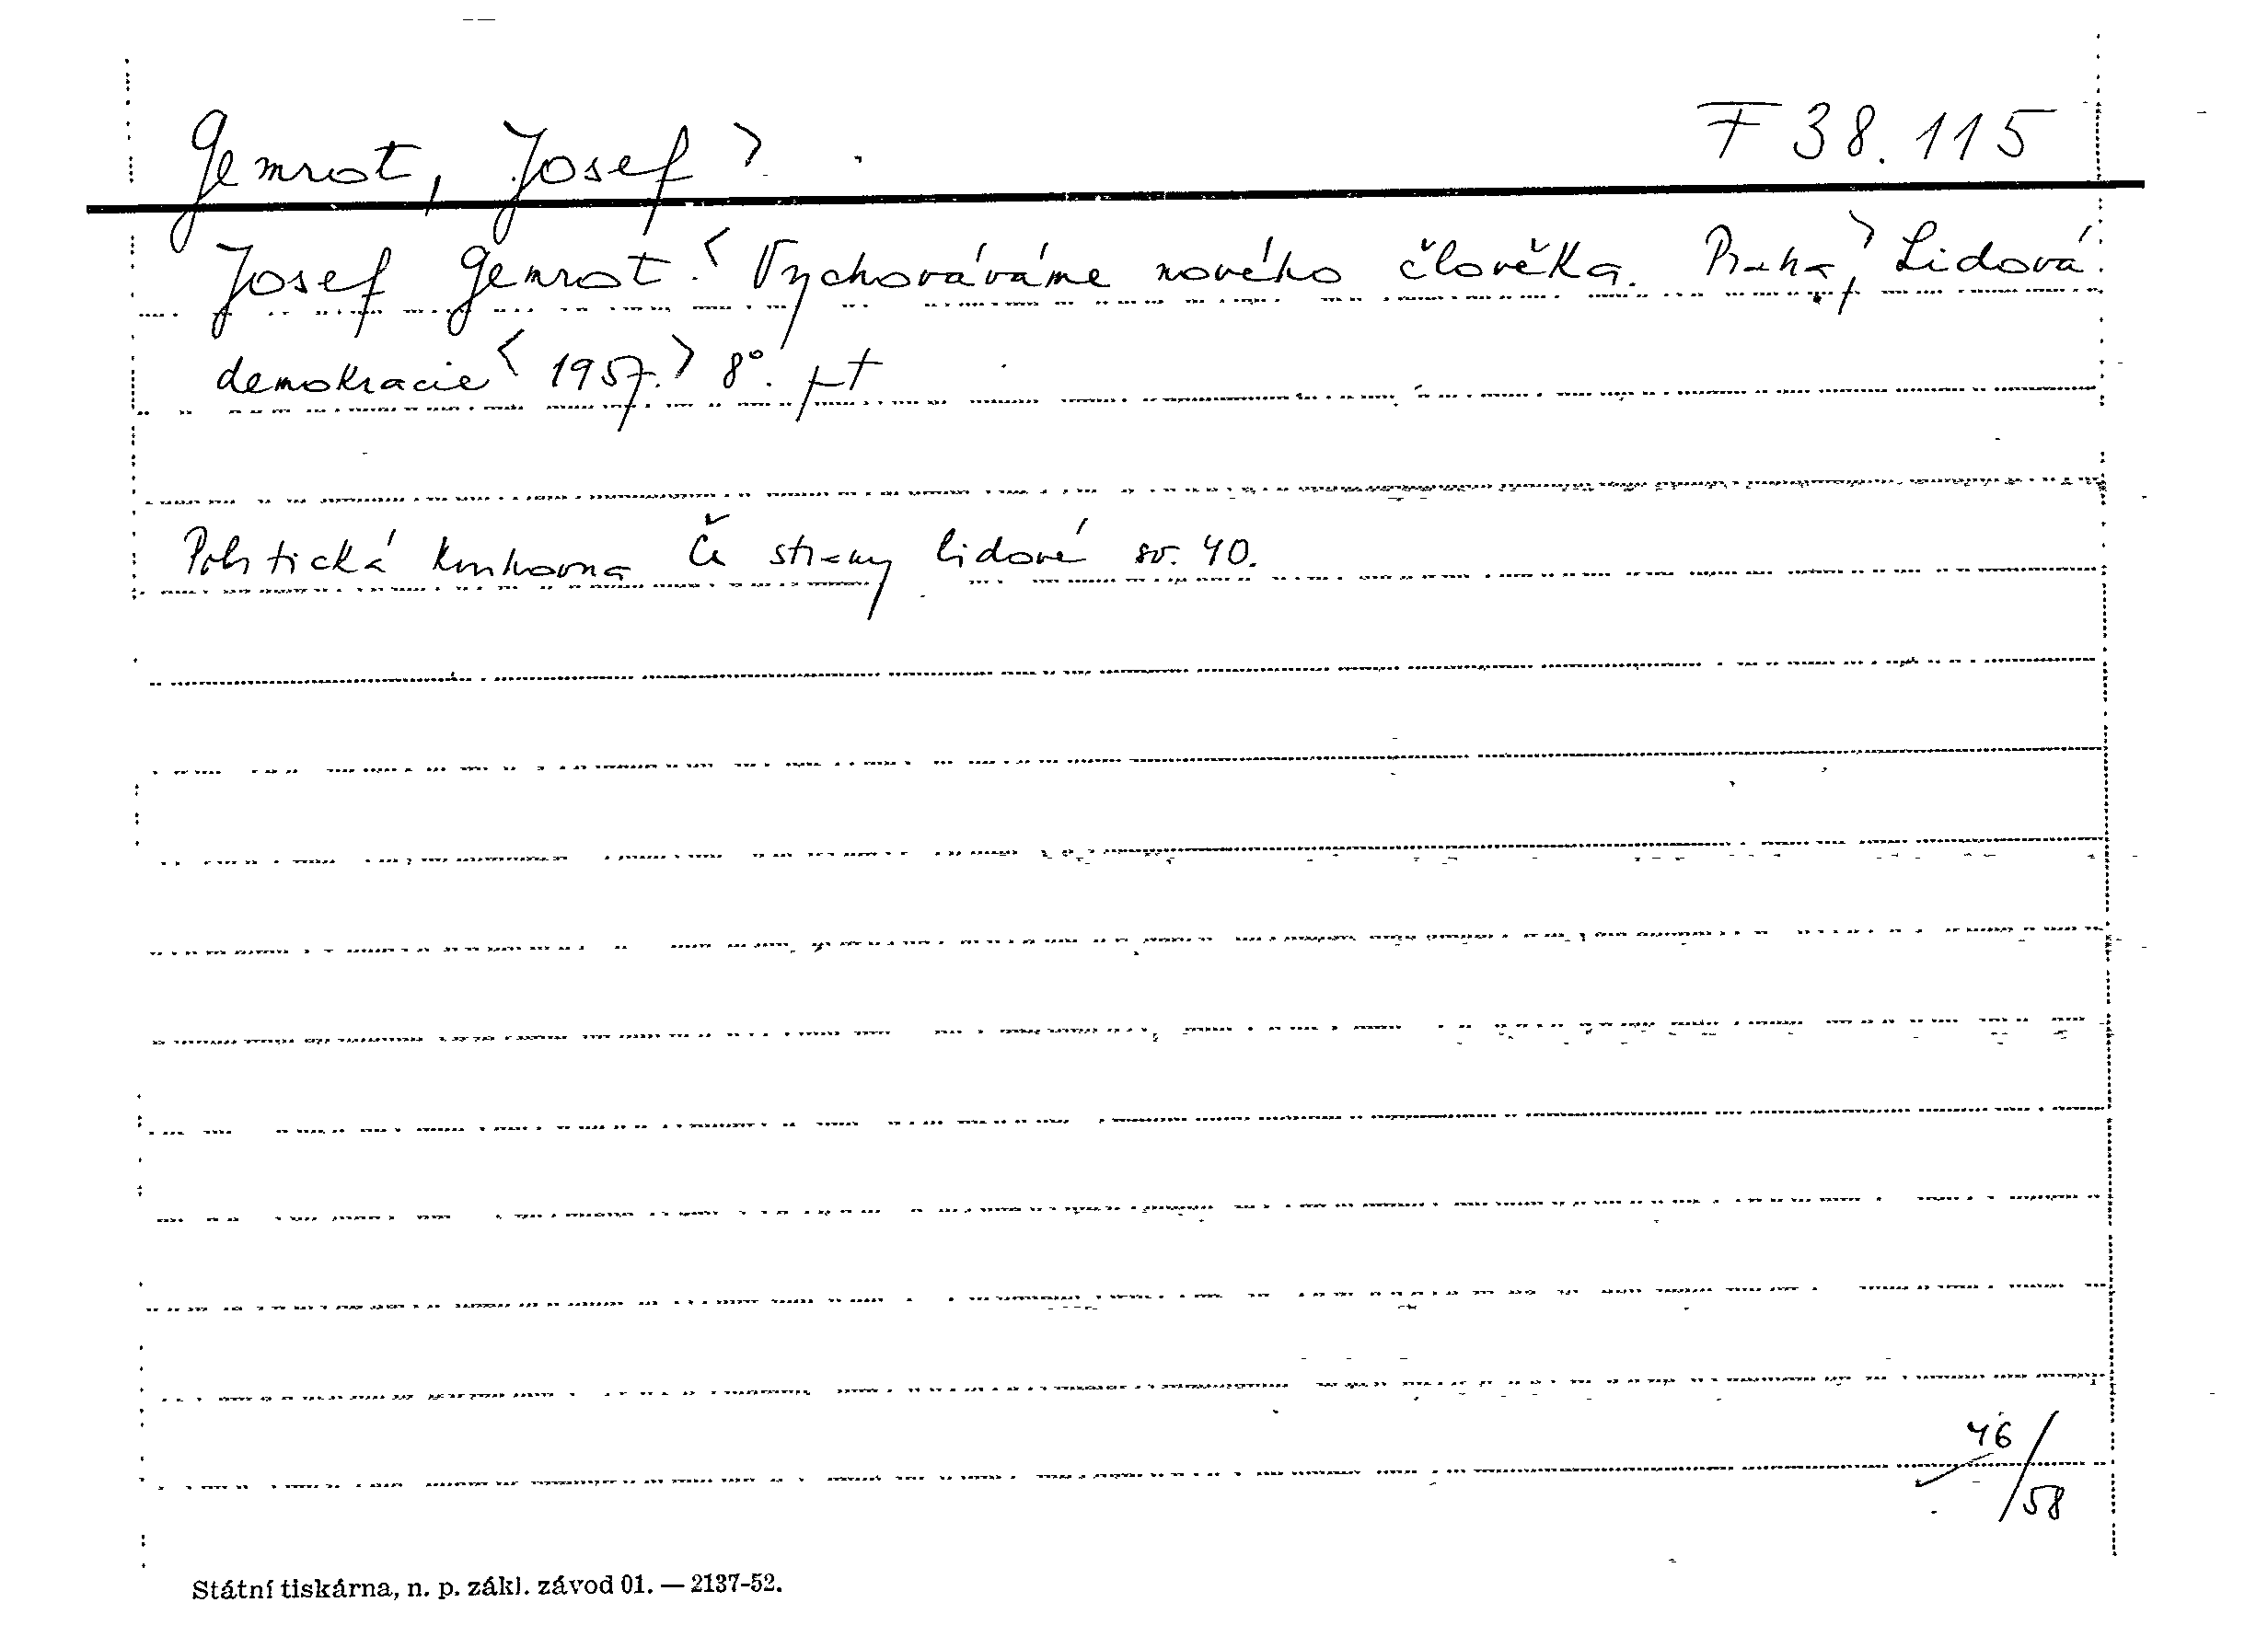 Gemrot, Josef >
F 38.115
Josef Gemrot. < Vychováváme nového člověka. Praha, > Lidová
demokracie < 1957. > 8°.
Politická knihovna Čs strany lidové sv. 40.
46/58
Státní tiskárna, n. p. zákl. závod 01. — 2137-52.